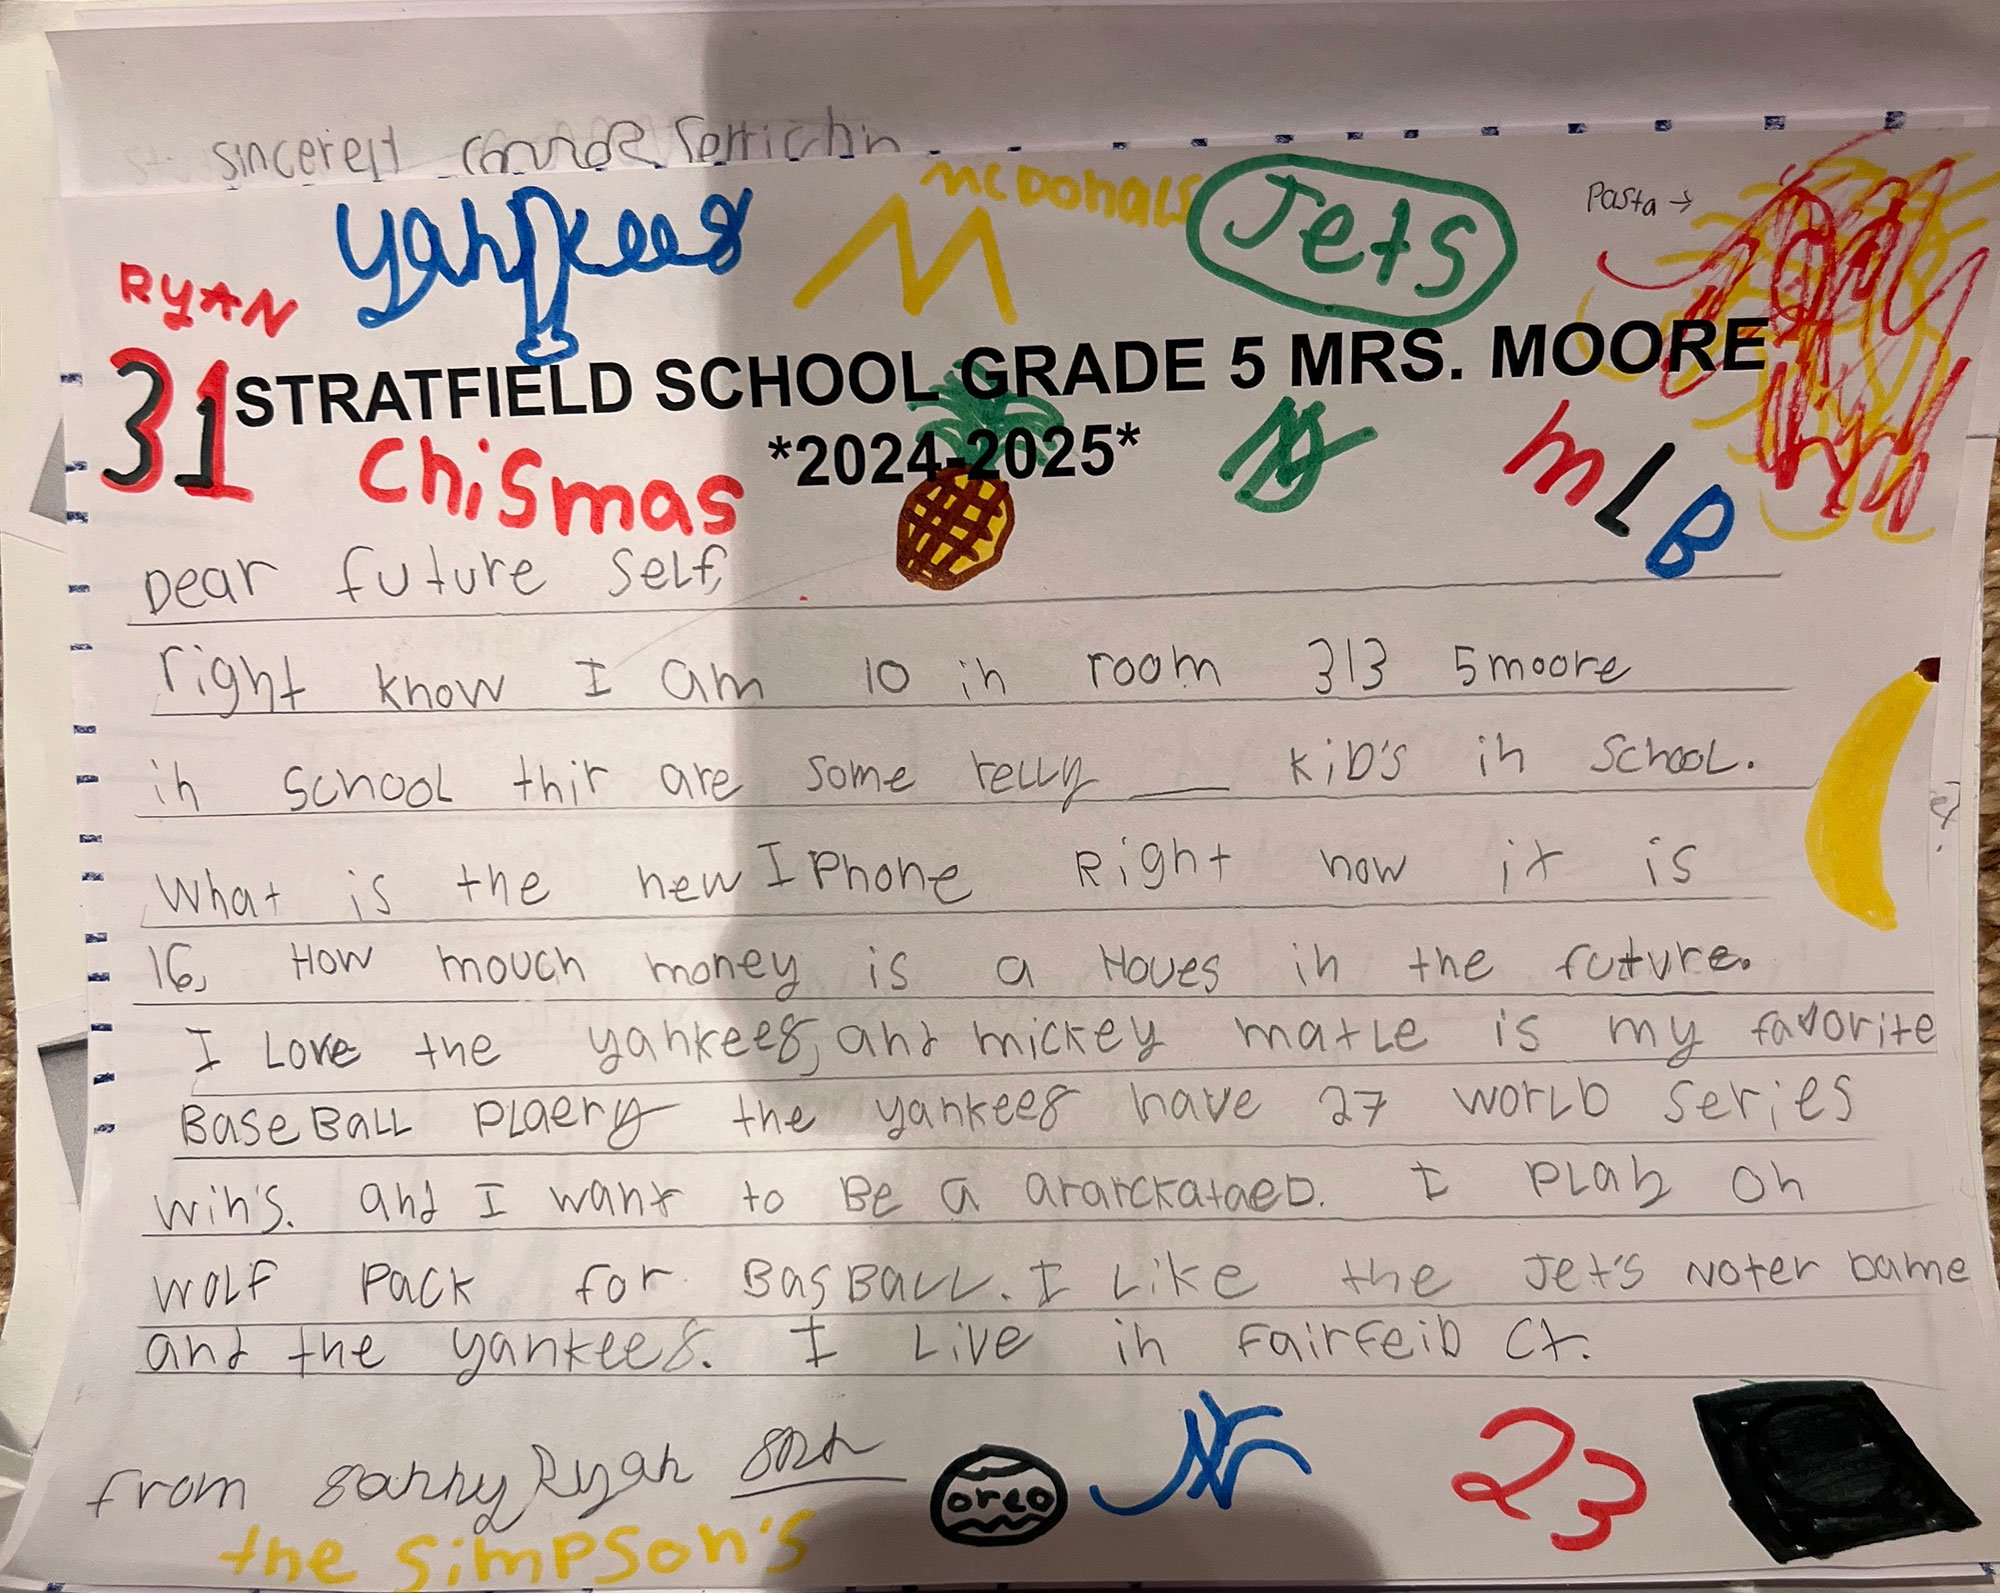 sincerely
Yankees
McDonals
M
Jets
Pasta →
RYAN
31
STRATFIELD SCHOOL GRADE 5 MRS. MOORE
*2024-2025*
Chismas
MLB
Dear future self,
right know I am 10 in room 313 5moore
in school thir are some relly ___ kiD's in school.
What is the new I Phone Right now it is
16, How mouch money is a Houes in the future.
I Love the yankees, and mickey matLe is my favorite
BaseBaLL PLaery the yankees have 27 worLD series
win's. and I want to Be a ararckataeD. I PLay on
wolf Pack for BasBaLL. I Like the Jet's Noter Dame
and the yankees. I Live in FairFeiD Ct.
from Ryan
oreo
NY
23
the Simpson's